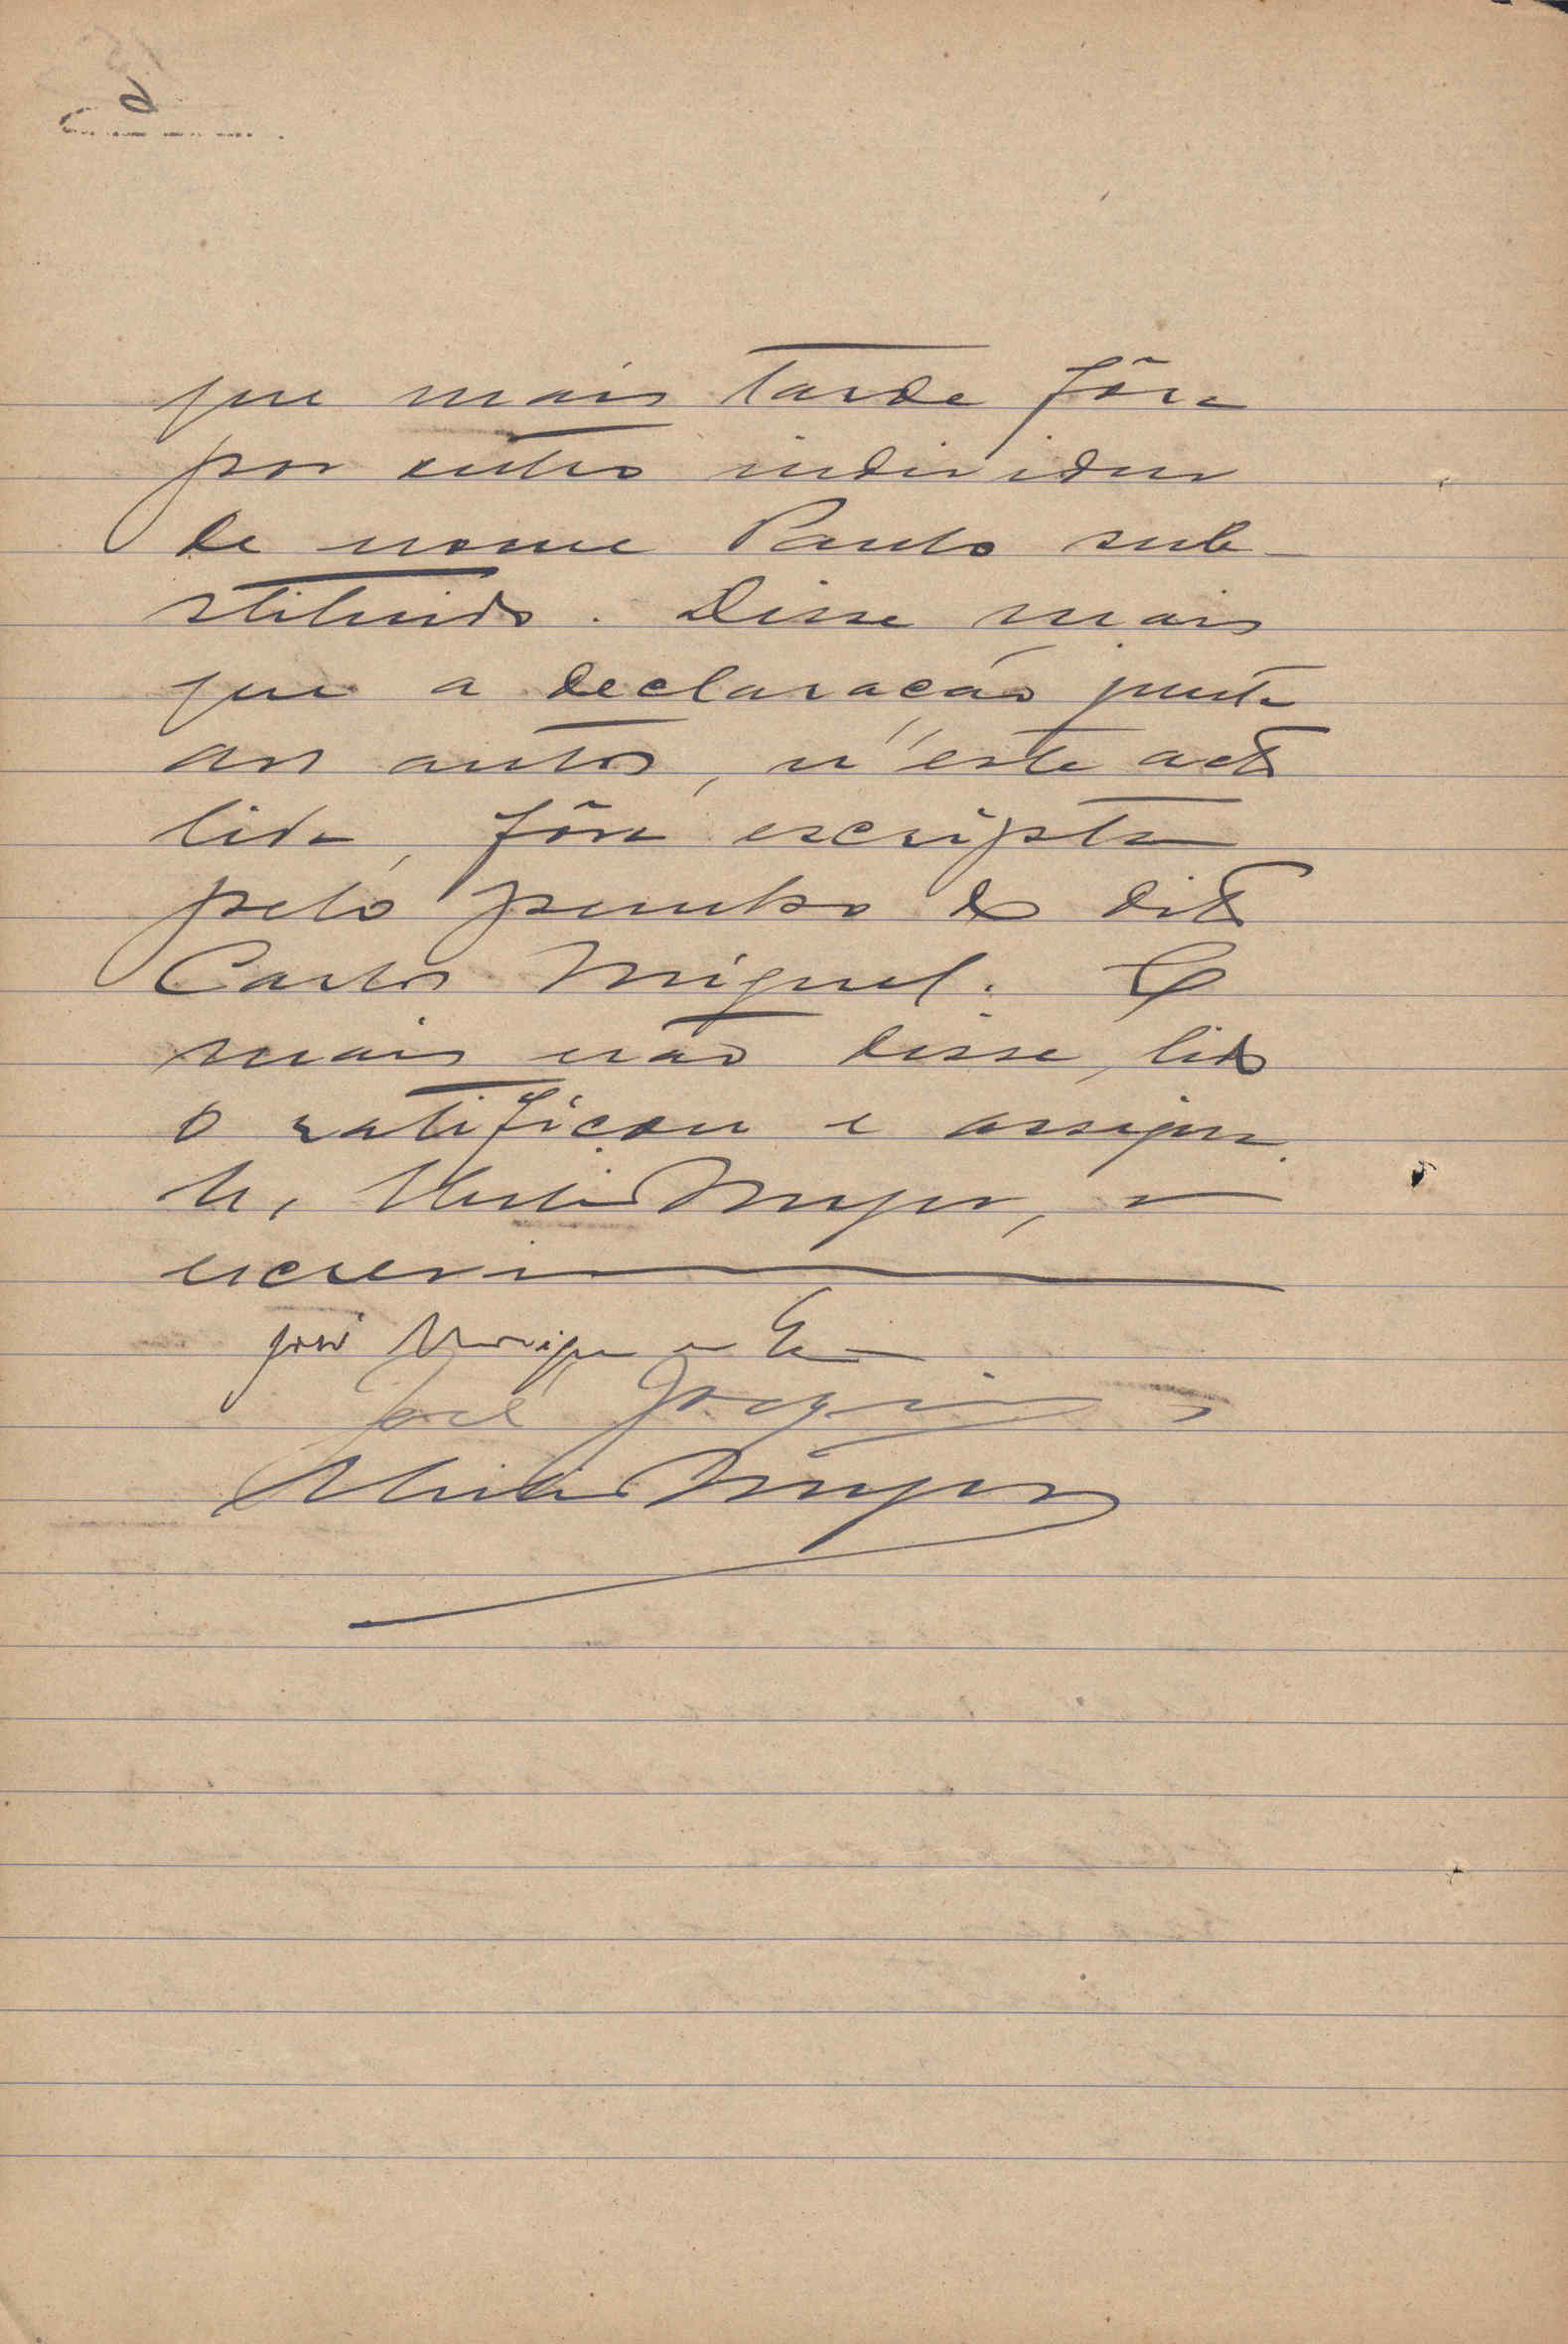 que mais tarde fôra
por outro individuo
de nome Paulo sub-
stituido. Disse mais
que a declaração junta
aos autos, n'este acto
lida, fôra escripta
pelo punho do dito
Carlos Miguel. E
mais não disse, lido
o ratificou e assigna.
Eu, o
escrevi
José
José Joaquim